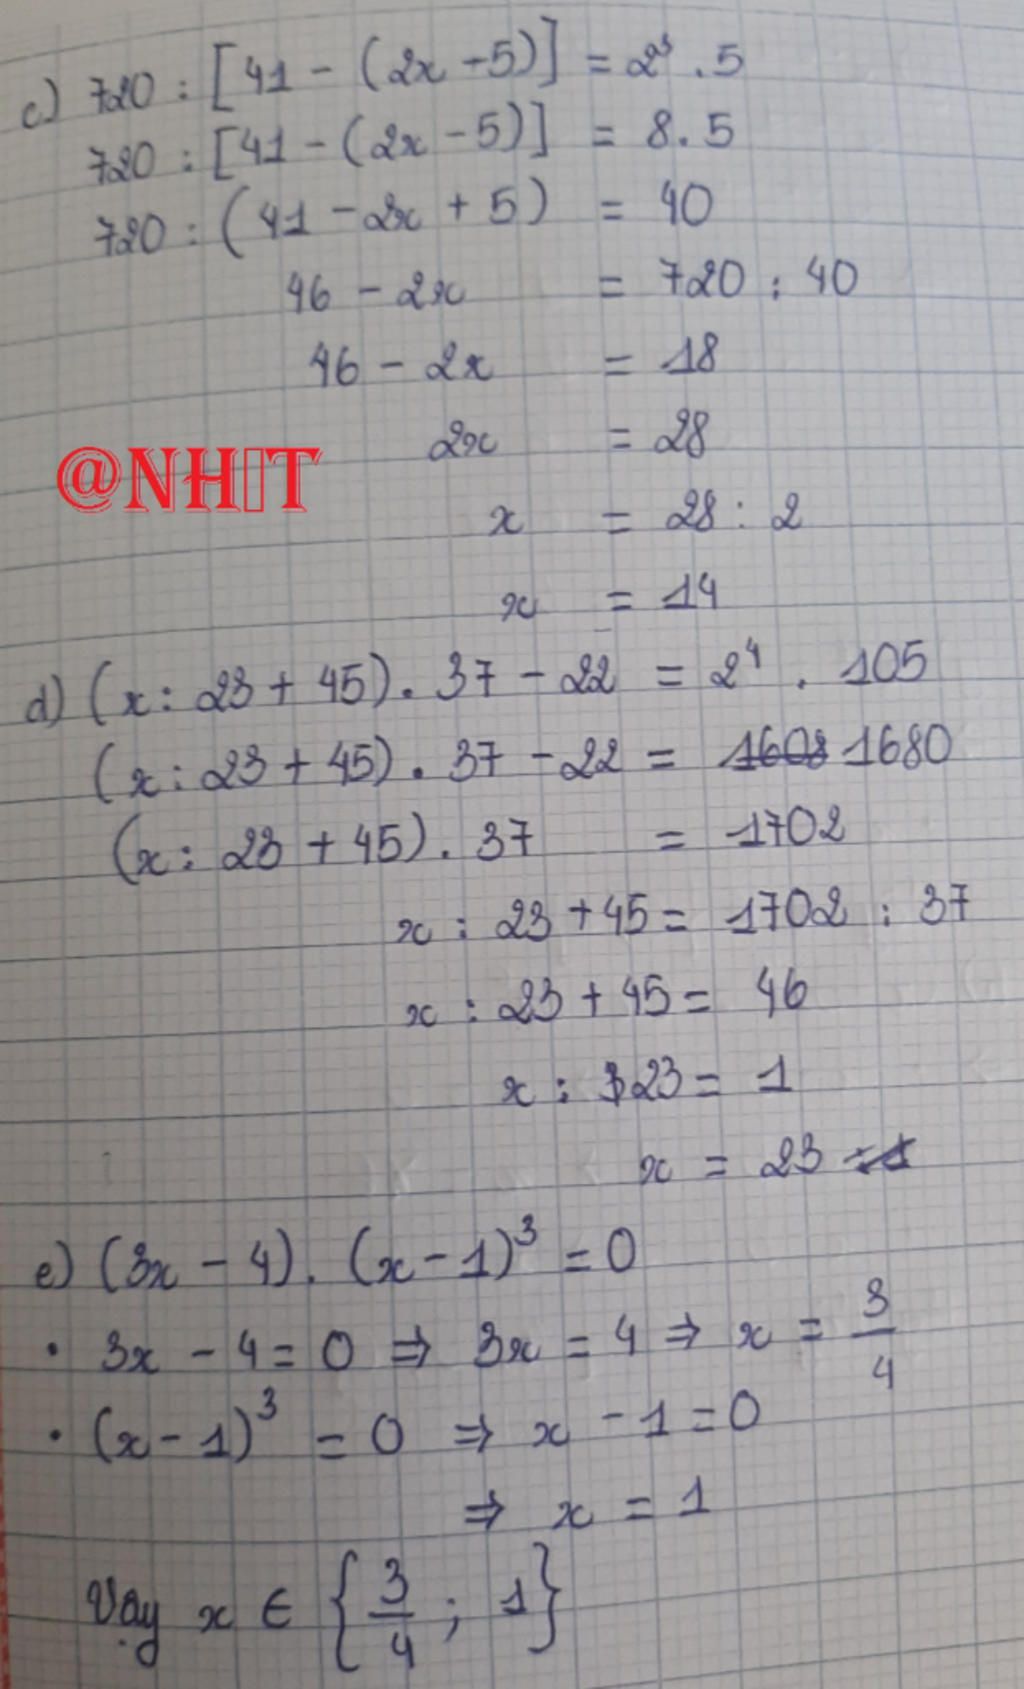 c) 720 : [41 - (2x - 5)] = 2³ . 5
720 : [41 - (2x - 5)] = 8 . 5
720 : (41 - 2x + 5) = 40
46 - 2x = 720 : 40
46 - 2x = 18
2x = 28
@NH▯T
x = 28 : 2
x = 14
d) (x : 23 + 45) . 37 - 22 = 2⁴ . 105
(x : 23 + 45) . 37 - 22 = 1608 1680
(x : 23 + 45) . 37 = 1702
x : 23 + 45 = 1702 : 37
x : 23 + 45 = 46
x : 23 = 1
x = 23
e) (3x - 4) . (x - 1)³ = 0
• 3x - 4 = 0 ⇒ 3x = 4 ⇒ x = 3/4
• (x - 1)³ = 0 ⇒ x - 1 = 0
⇒ x = 1
Vậy x ∈ {3/4 ; 1}